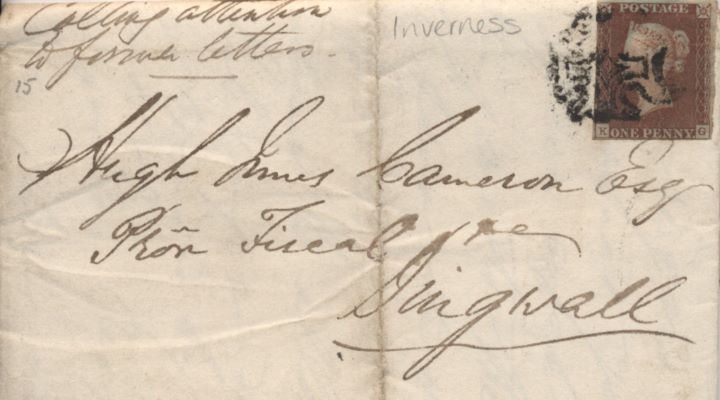 Calling attention
to former letters.
15
Inverness
POSTAGE
K ONE PENNY G
Hugh Innes Cameron Esq
Prôr Fiscal &c
Dingwall